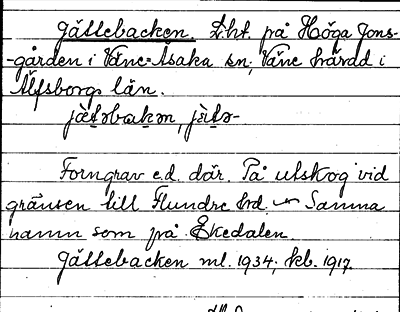 Jättebacken. Lht. på Höga Jons-
-gården i Väne-Åsaka sn, Väne härad i
Älfsborgs län.
Forngrav e.d. där. På utskog vid
gränsen till Flundre hrd. Samma
namn som på Ekedalen.
Jättebacken ml. 1934; kb. 1917.